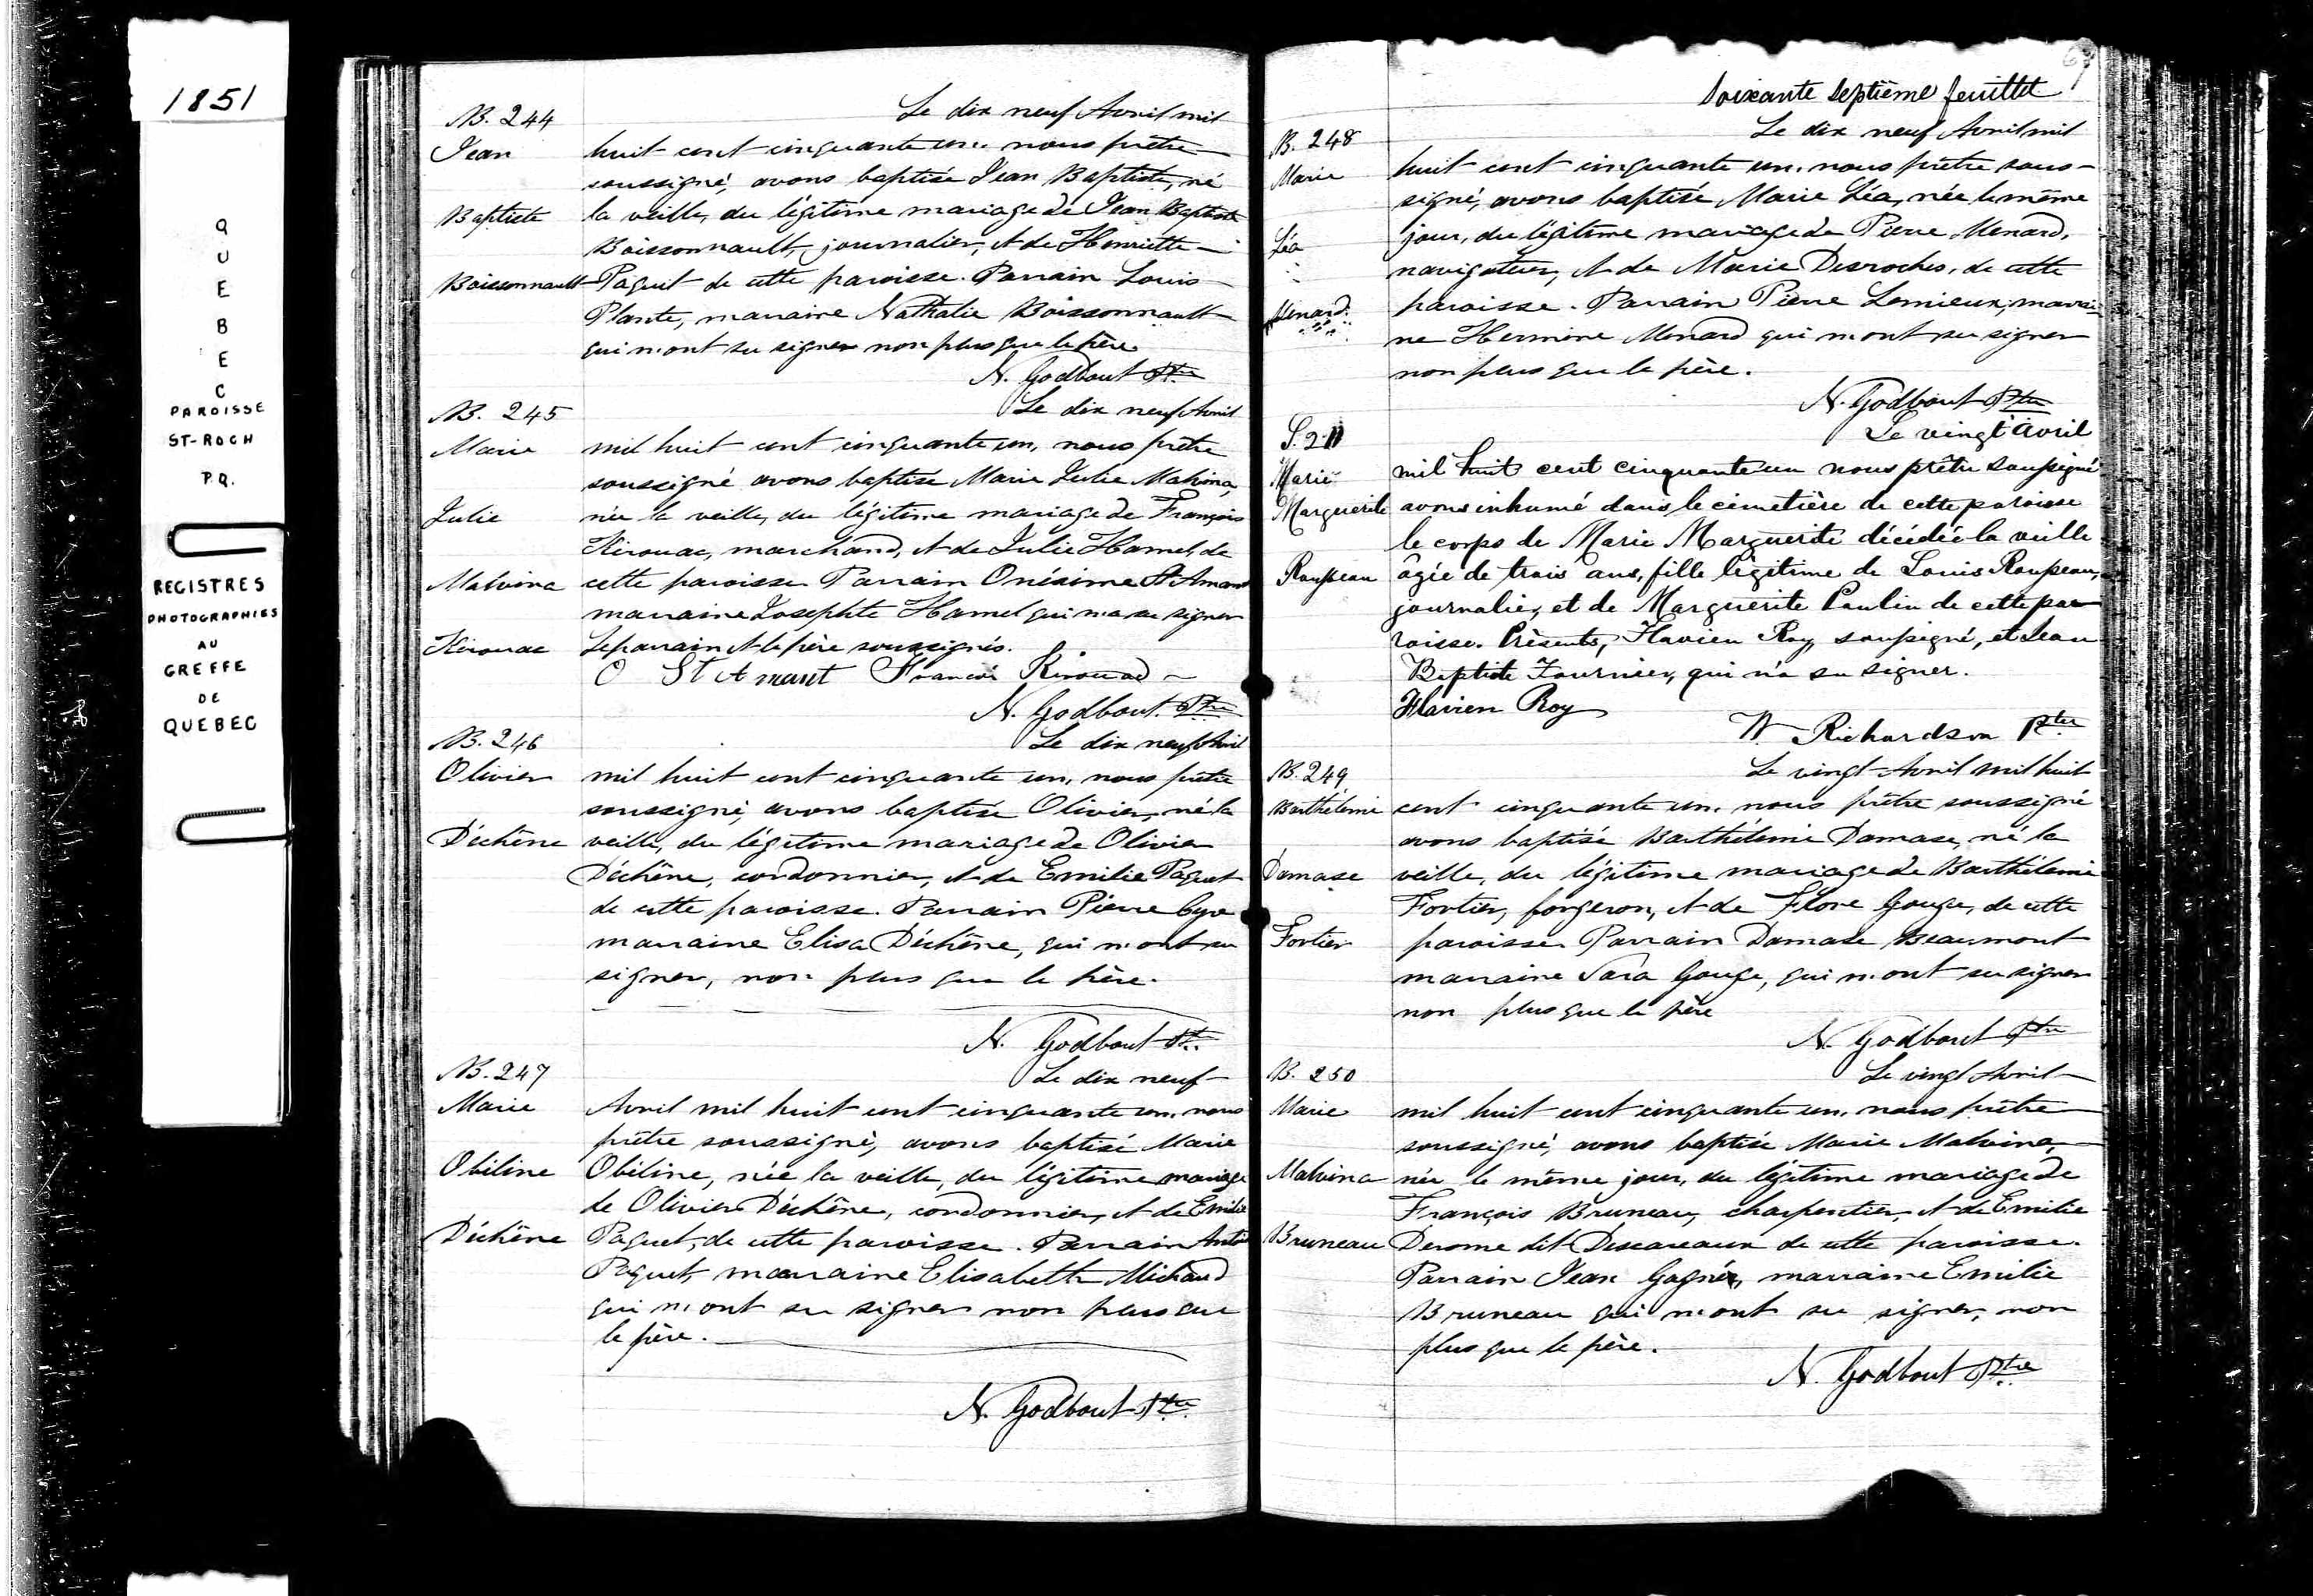 1851
QUEBEC
PAROISSE
ST-ROCH
P.Q.
REGISTRES
PHOTOGRAPHIES
AU
GREFFE
DE
QUEBEC
B. 244
Jean
Baptiste
Boissonnault
Le dix neuf Avril mil
huit cent cinquante un, nous prêtre
soussigné, avons baptisé Jean Baptiste, né
la veille, du légitime mariage de Jean Baptiste
Boissonnault, journalier, et de Henriette
Paquet de cette paroisse. Parrain Louis
Plante, marraine Nathalie Boissonnault
qui n'ont su signer non plus que le père.
N. Godbout Ptre
B. 245
Marie
Julie
Malvina
Kirouac
Le dix neuf Avril
mil huit cent cinquante un, nous prêtre
soussigné avons baptisé Marie Julie Malvina,
née la veille, du légitime mariage de François
Kirouac, marchand, et de Julie Hamel, de
cette paroisse Parrain Onésime St Amant
marraine Josephte Hamel qui n'a su signer
Le parrain et le père soussignés.
O St Amant François Kirouac
N. Godbout Ptre
B. 246
Olivier
Déchêne
Le dix neuf Avril
mil huit cent cinquante un, nous prêtre
soussigné, avons baptisé Olivier, né la
veille, du légitime mariage de Olivier
Déchêne, cordonnier, et de Emilie Paquet
de cette paroisse. Parrain Pierre Cyr
marraine Elisa Déchêne, qui n'ont su
signer, non plus que le père.
N. Godbout Ptre
B. 247
Marie
Obiline
Déchêne
Le dix neuf
Avril mil huit cent cinquante un, nous
prêtre soussigné, avons baptisé Marie
Obiline, née la veille, du légitime mariage
de Olivier Déchêne, cordonnier, et de Emilie
Paquet, de cette paroisse. Parrain Antoine
Paquet, marraine Elisabeth Michaud
qui n'ont su signer non plus que
le père.
N. Godbout Ptre
67
Soixante Septième feuillet
B. 248
Marie
Léa
Menard
Le dix neuf Avril mil
huit cent cinquante un, nous prêtre sous-
signé, avons baptisé Marie Léa, née le même
jour, du légitime mariage de Pierre Menard,
navigateur, et de Marie Desroches, de cette
paroisse. Parrain Pierre Lemieux, marrai-
ne Hermine Menard qui n'ont su signer
non plus que le père.
N. Godbout Ptre
S. 211
Marie
Marguerite
Rousseau
Le vingt Avril
mil huit cent cinquante un nous prêtre soussigné
avons inhumé dans le cimetière de cette paroisse
le corps de Marie Marguerite décédée la veille
âgée de trois ans, fille légitime de Louis Rousseau,
journalier, et de Marguerite Paulin de cette pa-
roisse. Présents, Flavien Roy, soussigné, et Jean
Baptiste Fournier, qui n'a su signer.
Flavien Roy
W. Richardson Ptre
B. 249
Barthélemie
Damase
Fortier
Le vingt Avril mil huit
cent cinquante un, nous prêtre soussigné
avons baptisé Barthélemie Damase, né la
veille, du légitime mariage de Barthélemie
Fortier, forgeron, et de Flore Gouge, de cette
paroisse Parrain Damase Beaumont
marraine Sara Gouge, qui n'ont su signer
non plus que le père
N. Godbout Ptre
B. 250
Marie
Malvina
Bruneau
Le vingt Avril
mil huit cent cinquante un, nous prêtre
soussigné, avons baptisé Marie Malvina,
née le même jour, du légitime mariage de
François Bruneau, charpentier, et de Emilie
Derome dit Descareaux de cette paroisse.
Parrain Jean Gagné, marraine Emilie
Bruneau qui n'ont su signer, non
plus que le père.
N. Godbout Ptre